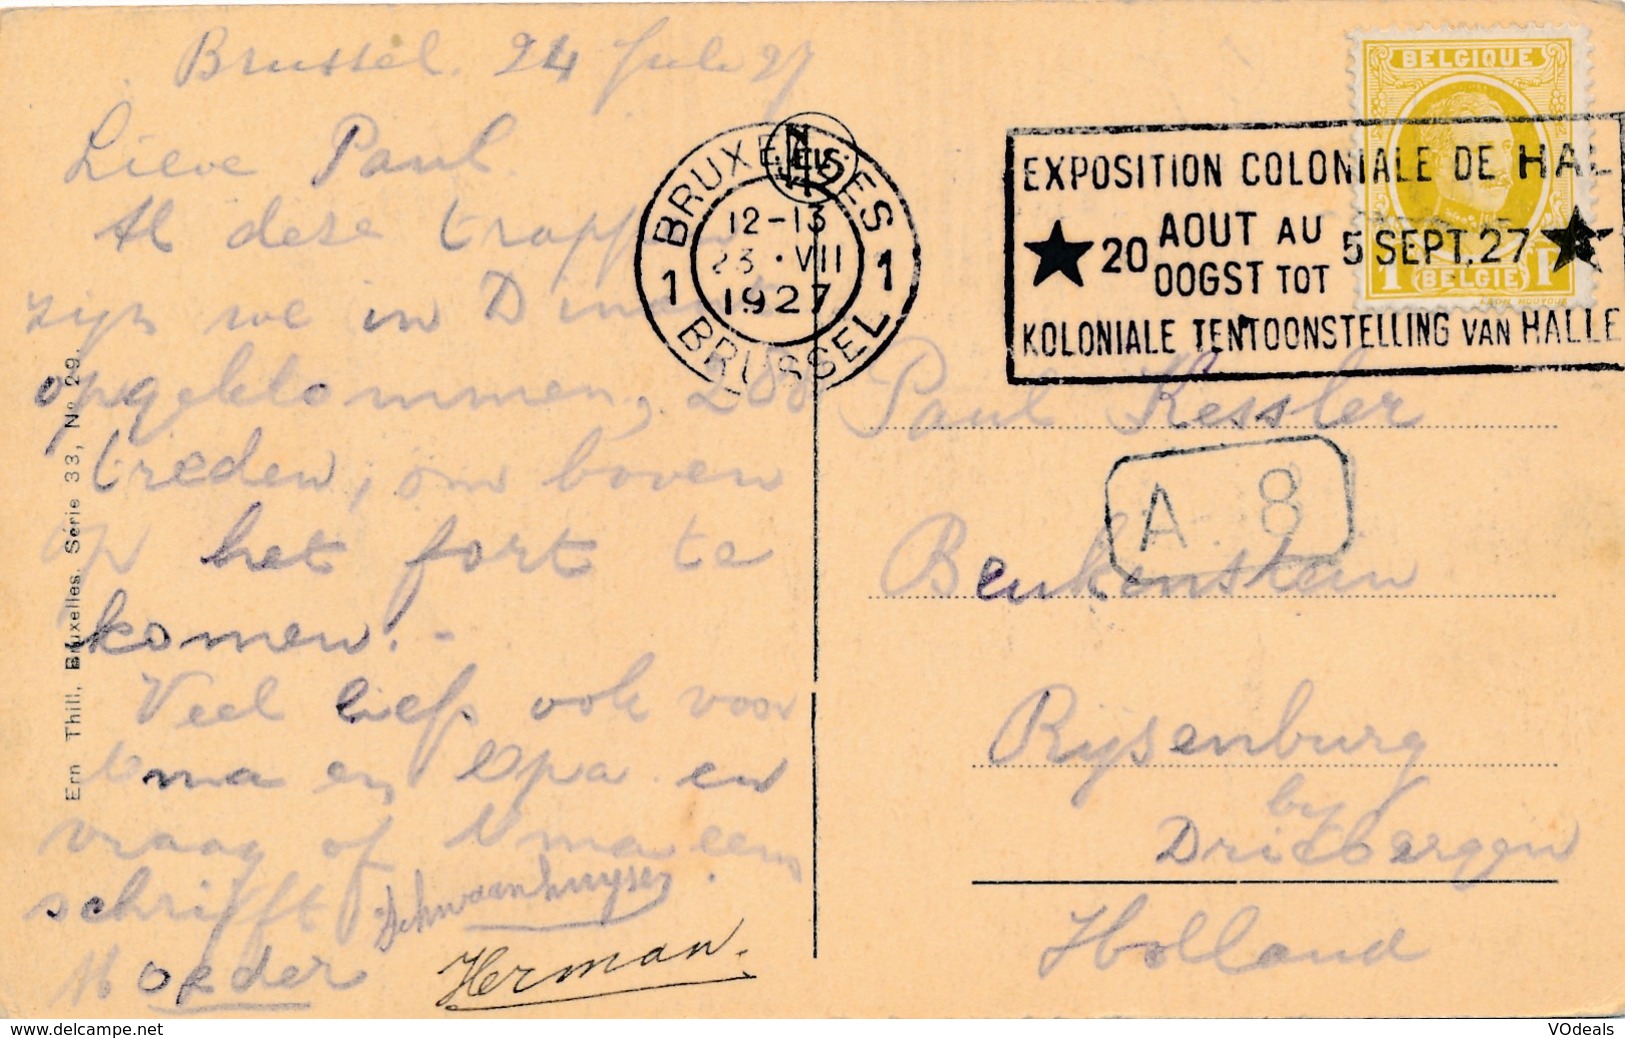 Brussel. 24 Juli 27
Lieve Paul.
Al deze trappen
zijn we in Dinant
opgeklommen, 208
treden, om boven
op het fort te
komen. -
Veel liefs ook voor
Oma en Opa en
vraag of Oma een
schrift
Moeder
Schwaanhuysen
Herman.
Ern Thill, Bruxelles. Série 33, No 29.
BRUXELLES
1 1
12-13
23 · VII
1927
BRUSSEL
BELGIQUE
1 F
BELGIE
EXPOSITION COLONIALE DE HAL
20 AOUT AU 5 SEPT. 27
OOGST TOT
KOLONIALE TENTOONSTELLING VAN HALLE
Paul Kessler
A 8
Beukenstein
Rysenburg
by
Driebergen
Holland
VOdeals